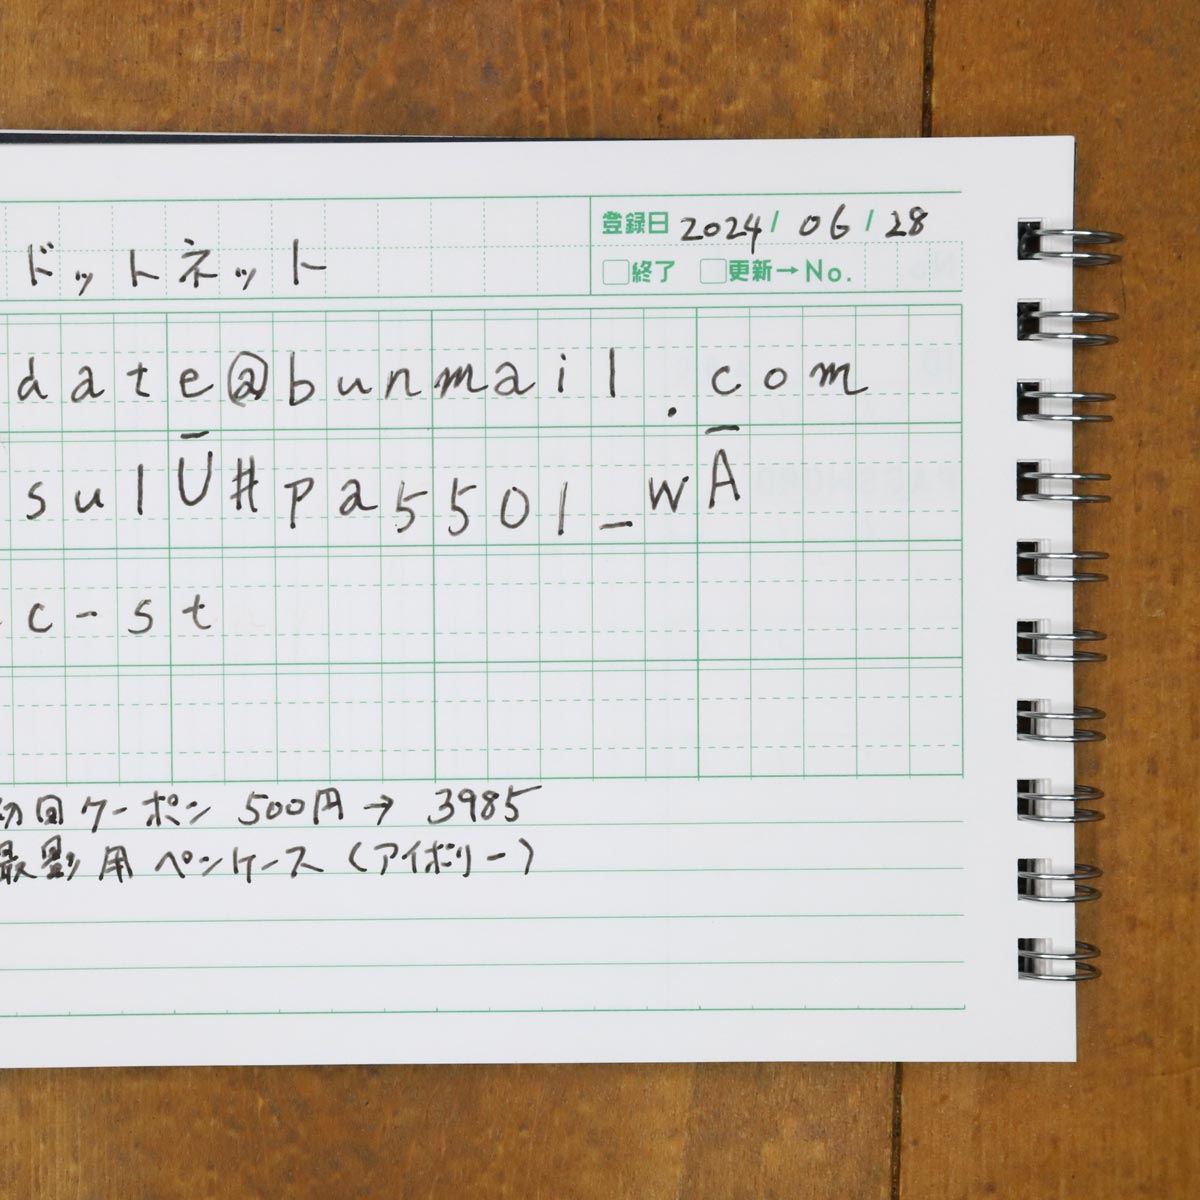 登録日 2024/ 06 / 28
ドットネット
□終了 □更新→No.
date@bunmail.com
sulU#pa5501_wA
c-st
初回クーポン 500円 → 3985
撮影用 ペンケース (アイボリー)